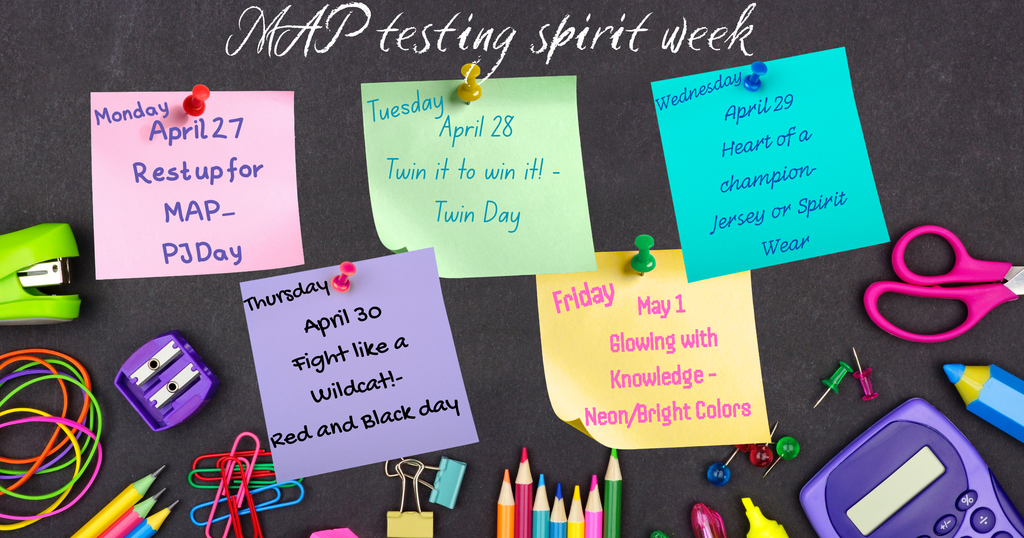 MAP testing spirit week
Monday
April 27
Rest up for
MAP-
PJ Day
Tuesday
April 28
Twin it to win it! -
Twin Day
Wednesday
April 29
Heart of a
champion-
Jersey or Spirit
Wear
Thursday
April 30
Fight like a
Wildcat!-
Red and Black day
Friday
May 1
Glowing with
Knowledge -
Neon/Bright Colors
%
+/-
÷